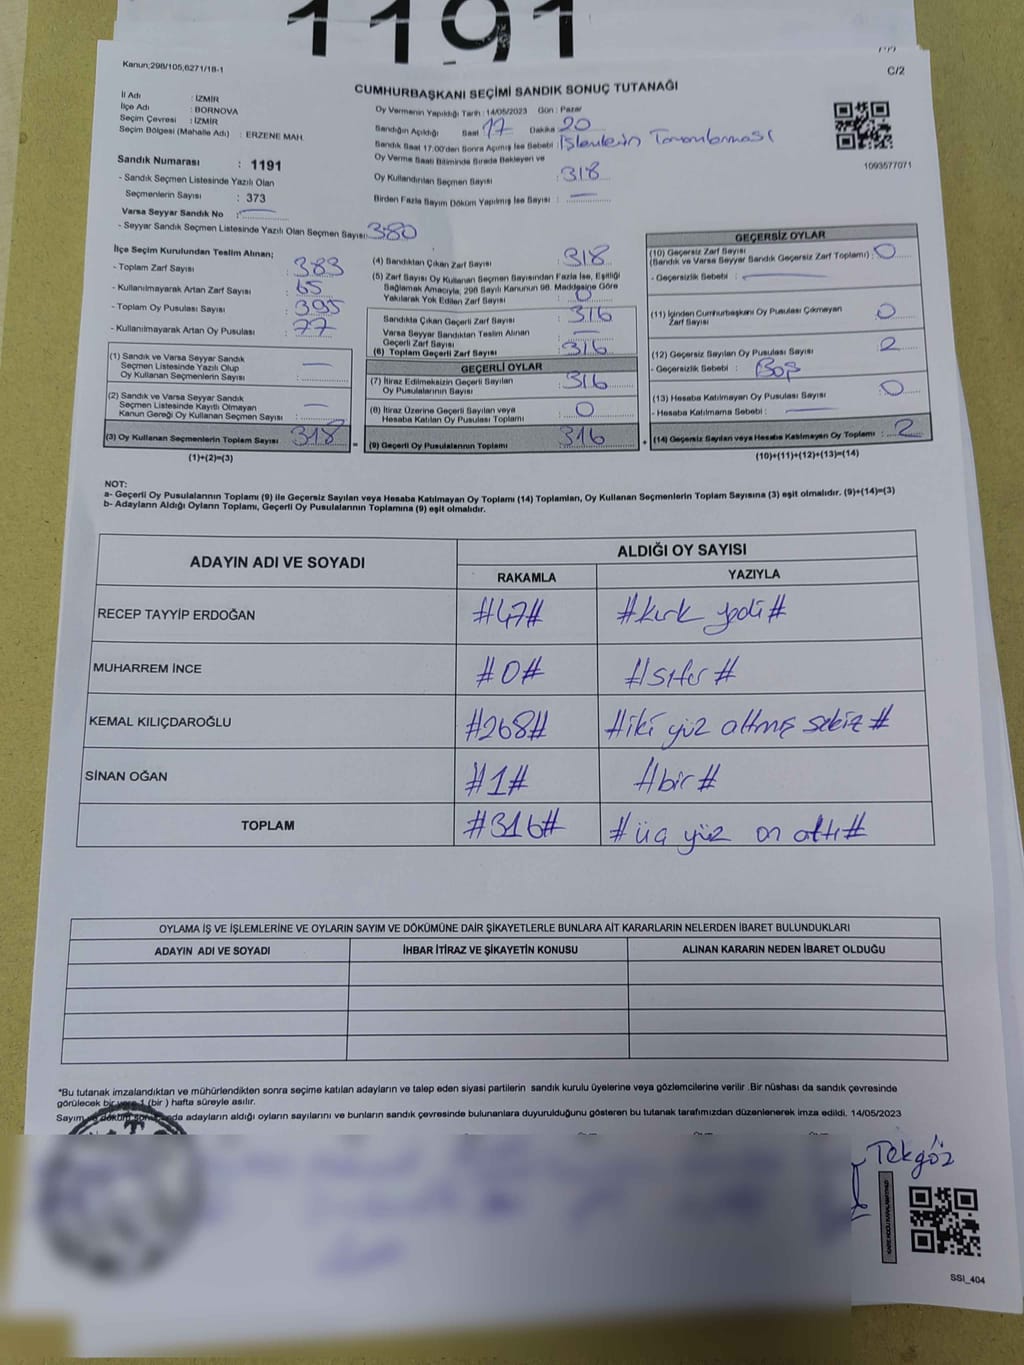 1191
Kanun;298/105,6271/18-1
C/2
CUMHURBAŞKANI SEÇİMİ SANDIK SONUÇ TUTANAĞI
İl Adı : İZMİR
İlçe Adı : BORNOVA
Seçim Çevresi : İZMİR
Seçim Bölgesi (Mahalle Adı) : ERZENE MAH.
Sandık Numarası : 1191
- Sandık Seçmen Listesinde Yazılı Olan
Seçmenlerin Sayısı : 373
Varsa Seyyar Sandık No :
- Seyyar Sandık Seçmen Listesinde Yazılı Olan Seçmen Sayısı: 380
Oy Vermenin Yapıldığı Tarih : 14/05/2023 Gün : Pazar
Sandığın Açıldığı Saat 17 Dakika 20
Sandık Saat 17:00'den Sonra Açılmış İse Sebebi : İşlemlerin Tamamlanması
Oy Verme Saati Bitiminde Sırada Bekleyen ve
Oy Kullandırılan Seçmen Sayısı : 318
Birden Fazla Sayım Döküm Yapılmış İse Sayısı :
1093577071
İlçe Seçim Kurulundan Teslim Alınan;
- Toplam Zarf Sayısı : 383
- Kullanılmayarak Artan Zarf Sayısı : 65
- Toplam Oy Pusulası Sayısı : 395
- Kullanılmayarak Artan Oy Pusulası : 77
(1) Sandık ve Varsa Seyyar Sandık
Seçmen Listesinde Yazılı Olup
Oy Kullanan Seçmenlerin Sayısı :
(2) Sandık ve Varsa Seyyar Sandık
Seçmen Listesinde Kayıtlı Olmayan
Kanun Gereği Oy Kullanan Seçmen Sayısı :
(3) Oy Kullanan Seçmenlerin Toplam Sayısı : 318
(1)+(2)=(3)
(4) Sandıktan Çıkan Zarf Sayısı : 318
(5) Zarf Sayısı Oy Kullanan Seçmen Sayısından Fazla İse, Eşitliği
Sağlamak Amacıyla, 298 Sayılı Kanunun 98. Maddesine Göre
Yakılarak Yok Edilen Zarf Sayısı : 0
Sandıkta Çıkan Geçerli Zarf Sayısı : 316
Varsa Seyyar Sandıktan Teslim Alınan
Geçerli Zarf Sayısı :
(6) Toplam Geçerli Zarf Sayısı : 316
GEÇERLİ OYLAR
(7) İtiraz Edilmeksizin Geçerli Sayılan
Oy Pusulalarının Sayısı : 316
(8) İtiraz Üzerine Geçerli Sayılan veya
Hesaba Katılan Oy Pusulaları Toplamı : 0
= (9) Geçerli Oy Pusulalarının Toplamı : 316
GEÇERSİZ OYLAR
(10) Geçersiz Zarf Sayısı
(Sandık ve Varsa Seyyar Sandık Geçersiz Zarf Toplamı) : 0
- Geçersizlik Sebebi :
(11) İçinden Cumhurbaşkanı Oy Pusulası Çıkmayan
Zarf Sayısı : 0
(12) Geçersiz Sayılan Oy Pusulası Sayısı : 2
- Geçersizlik Sebebi : Boş
(13) Hesaba Katılmayan Oy Pusulası Sayısı : 0
- Hesaba Katılmama Sebebi :
+ (14) Geçersiz Sayılan veya Hesaba Katılmayan Oy Toplamı : 2
(10)+(11)+(12)+(13)=(14)
NOT:
a- Geçerli Oy Pusulalarının Toplamı (9) ile Geçersiz Sayılan veya Hesaba Katılmayan Oy Toplamı (14) Toplamları, Oy Kullanan Seçmenlerin Toplam Sayısına (3) eşit olmalıdır. (9)+(14)=(3)
b- Adayların Aldığı Oyların Toplamı, Geçerli Oy Pusulalarının Toplamına (9) eşit olmalıdır.
ADAYIN ADI VE SOYADI
ALDIĞI OY SAYISI
RAKAMLA YAZIYLA
RECEP TAYYİP ERDOĞAN #47# #kırk yedi#
MUHARREM İNCE #0# #sıfır#
KEMAL KILIÇDAROĞLU #268# #iki yüz altmış sekiz#
SİNAN OĞAN #1# #bir#
TOPLAM #316# #üç yüz on altı#
OYLAMA İŞ VE İŞLEMLERİNE VE OYLARIN SAYIM VE DÖKÜMÜNE DAİR ŞİKAYETLERLE BUNLARA AİT KARARLARIN NELERDEN İBARET BULUNDUKLARI
ADAYIN ADI VE SOYADI İHBAR İTİRAZ VE ŞİKAYETİN KONUSU ALINAN KARARIN NEDEN İBARET OLDUĞU
*Bu tutanak imzalandıktan ve mühürlendikten sonra seçime katılan adayların ve talep eden siyasi partilerin sandık kurulu üyelerine veya gözlemcilerine verilir .Bir nüshası da sandık çevresinde
görülecek bir yere 1 (bir ) hafta süreyle asılır.
Sayım adayların aldığı oyların sayılarını ve bunların sandık çevresinde bulunanlara duyurulduğunu gösteren bu tutanak tarafımızdan düzenlenerek imza edildi. 14/05/2023
Tekgöz
SSI_404